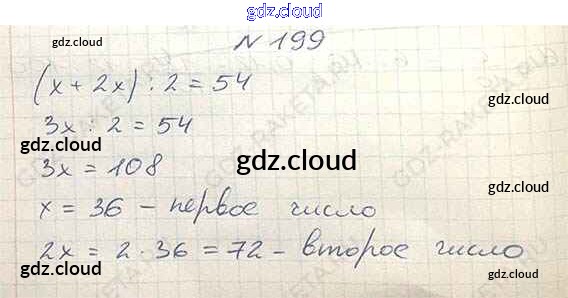 gdz.cloud
gdz.cloud № 199 gdz.cloud
(x + 2x) : 2 = 54
gdz.cloud
3x : 2 = 54
gdz.cloud gdz.cloud
3x = 108
gdz.cloud
x = 36 – первое число
2x = 2 · 36 = 72 – второе число
gdz.cloud gdz.cloud gdz.cloud